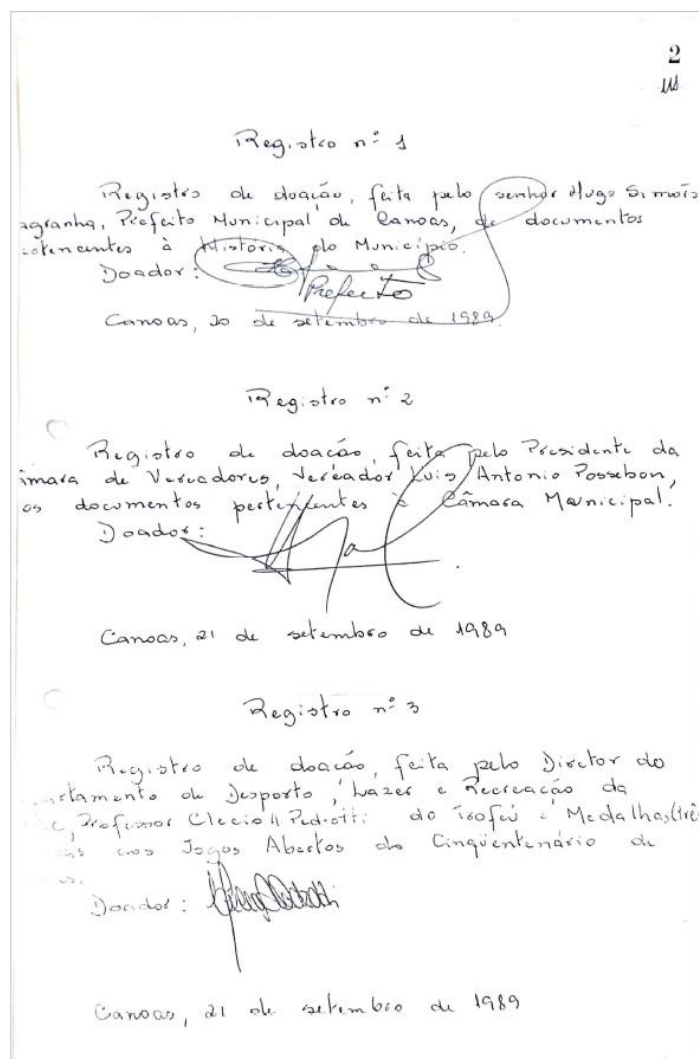 2
Registro nº 1
Registro de doação, feita pelo senhor Hugo Simões
agranha, Prefeito Municipal de Canoas, de documentos
à História do Município.
Doador:
Prefeito
Canoas, 20 de setembro de 1989.
Registro nº 2
Registro de doação, feita pelo Presidente da
âmara de Vereadores, Vereador Luis Antonio Possebon,
os documentos pertencentes à Câmara Municipal.
Doador:
Canoas, 21 de setembro de 1989
Registro nº 3
Registro de doação, feita pelo Diretor do
artamento de Desporto, Lazer e Recreação da
Professor Clecio Pedrotti do Troféu e Medalhas (três
nos Jogos Abertos do Cinqüentenário de
Doador:
Canoas, 21 de setembro de 1989